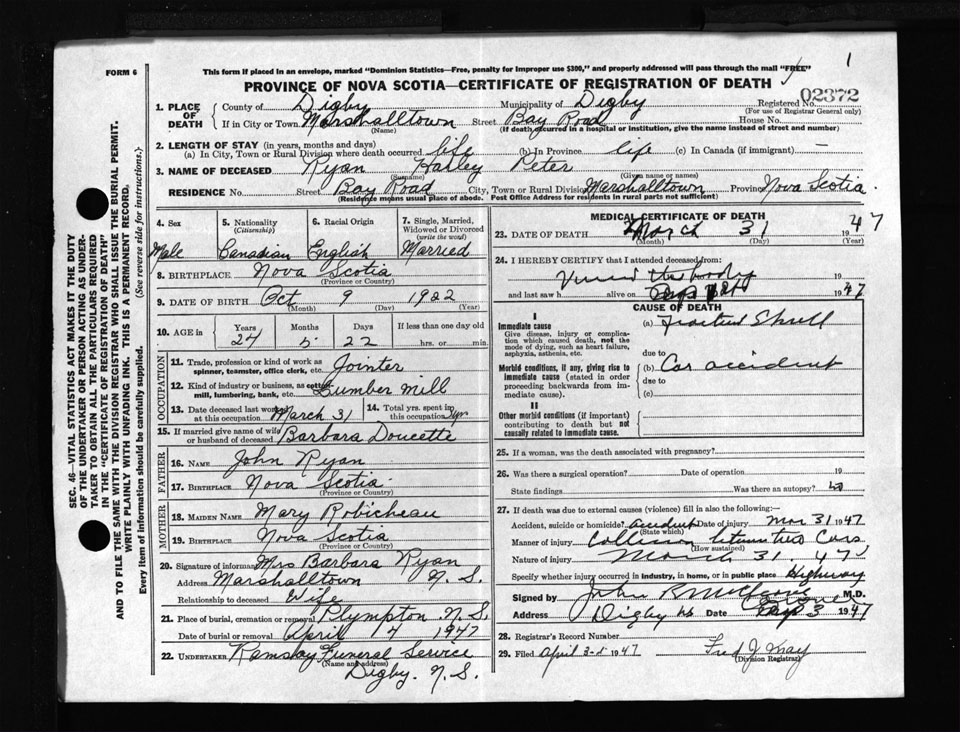 1
FORM 6
This form if placed in an envelope, marked "Dominion Statistics—Free, penalty for improper use $300," and properly addressed will pass through the mail "FREE"
PROVINCE OF NOVA SCOTIA—CERTIFICATE OF REGISTRATION OF DEATH
1. PLACE OF DEATH County of Digby Municipality of Digby Registered No. 02372
(For use of Registrar General only)
If in City or Town Marshalltown Street Bay Road House No.
(Name) (If death occurred in a hospital or institution, give the name instead of street and number)
2. LENGTH OF STAY (in years, months and days)
(a) In City, Town or Rural Division where death occurred life (b) In Province life (c) In Canada (if immigrant) —
3. NAME OF DECEASED Ryan Harley Peter
(Surname) (Given name or names)
RESIDENCE No. Street Bay Road City, Town or Rural Division Marshalltown Province Nova Scotia.
(Residence means usual place of abode. Post Office Address for residents in rural parts not sufficient)
4. Sex 5. Nationality (Citizenship) 6. Racial Origin 7. Single, Married, Widowed or Divorced (write the word)
Male Canadian English Married
8. BIRTHPLACE Nova Scotia
(Province or Country)
9. DATE OF BIRTH Oct 9 1922
(Month) (Day) (Year)
10. AGE in Years Months Days If less than one day old
24 5 22 hrs. or min.
OCCUPATION
11. Trade, profession or kind of work as spinner, teamster, office clerk, etc. Jointer
12. Kind of industry or business, as cotton mill, lumbering, bank, etc. Lumber Mill
13. Date deceased last worked at this occupation March 31 14. Total yrs. spent in this occupation yr
15. If married give name of wife or husband of deceased Barbara Doucette
FATHER
16. NAME John Ryan
17. BIRTHPLACE Nova Scotia
(Province or Country)
MOTHER
18. MAIDEN NAME Mary Robicheau
19. BIRTHPLACE Nova Scotia
(Province or Country)
20. Signature of informant Mrs Barbara Ryan
Address Marshalltown N. S.
Relationship to deceased Wife
21. Place of burial, cremation or removal Plympton N. S.
Date of burial or removal April 4 1947
22. UNDERTAKER Ramsay Funeral Service
(Name and address)
Digby. N. S.
MEDICAL CERTIFICATE OF DEATH
23. DATE OF DEATH March 31 1947
(Month) (Day) (Year)
24. I HEREBY CERTIFY that I attended deceased from:
Viewed the body 19
and last saw h alive on 1947
CAUSE OF DEATH
I
Immediate cause (a) Fractured Skull
Give disease, injury or complication which caused death, not the mode of dying, such as heart failure, asphyxia, asthenia, etc.
due to
Morbid conditions, if any, giving rise to immediate cause (stated in order proceeding backwards from immediate cause). (b) Car accident
due to
(c)
II
Other morbid conditions (if important) contributing to death but not causally related to immediate cause.
25. If a woman, was the death associated with pregnancy?
26. Was there a surgical operation? Date of operation 19
State findings Was there an autopsy? no
27. If death was due to external causes (violence) fill in also the following:—
Accident, suicide or homicide? accident Date of injury Mar 31 1947
(State which)
Manner of injury Collision between two Cars
(How sustained)
Nature of injury March 31 47
Specify whether injury occurred in industry, in home, or in public place Highway
Signed by John M.D.
Address Digby NS Date 3 1947
28. Registrar's Record Number
29. Filed April 3-5 1947 Fred J. May
(Division Registrar)
SEC. 46—VITAL STATISTICS ACT MAKES IT THE DUTY
OF THE UNDERTAKER OR PERSON ACTING AS UNDERTAKER TO OBTAIN ALL THE PARTICULARS REQUIRED
IN THE "CERTIFICATE OF REGISTRATION OF DEATH"
AND TO FILE THE SAME WITH THE DIVISION REGISTRAR WHO SHALL ISSUE THE BURIAL PERMIT.
WRITE PLAINLY WITH UNFADING INK. THIS IS A PERMANENT RECORD.
Every item of information should be carefully supplied. (See reverse side for instructions.)